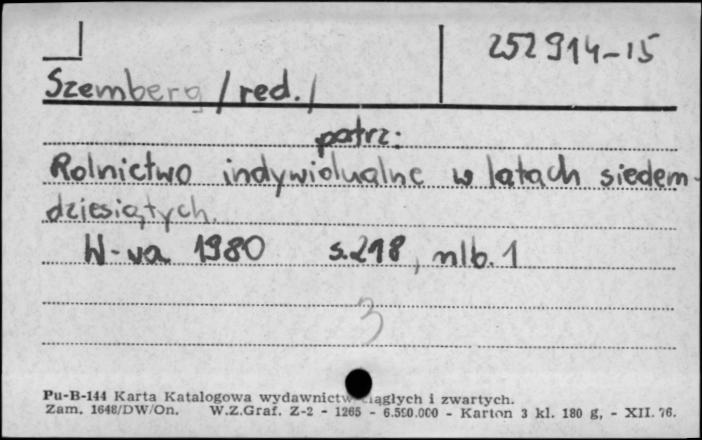 252914-15
Szemberg /red./
patrz:
Rolnictwo indywidualne w latach siedem-
dziesiątych.
W-wa 1980 s.218, nlb. 1
3
Pu-B-144 Karta Katalogowa wydawnictw ciągłych i zwartych.
Zam. 1648/DW/On. W.Z.Graf. Z-2 - 1265 - 6.550.000 - Karton 3 kl. 180 g, - XII. 76.